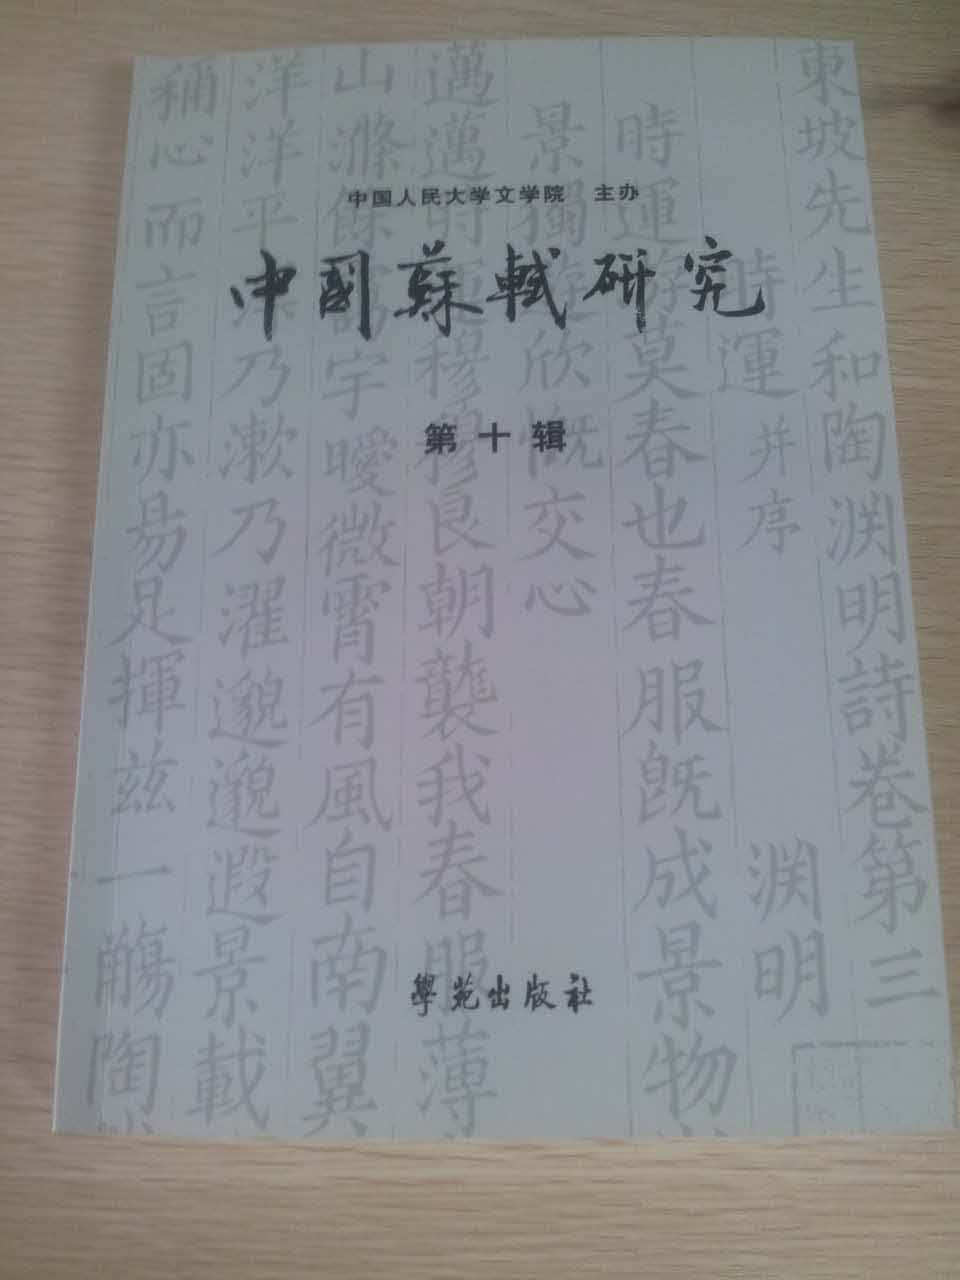 中国人民大学文学院 主办
中国蘇軾研究
第十辑
學苑出版社
東坡先生和陶渊明詩卷第三
時運 并序 渊明
時運游莫春也春服既成景物
景獨游欣慨交心
邁邁時運穆穆良朝襲我春服薄
山滌餘靄宇曖微霄有風自南翼
洋洋平澤乃漱乃濯邈邈遐景載
稱心而言固亦易足揮兹一觴陶